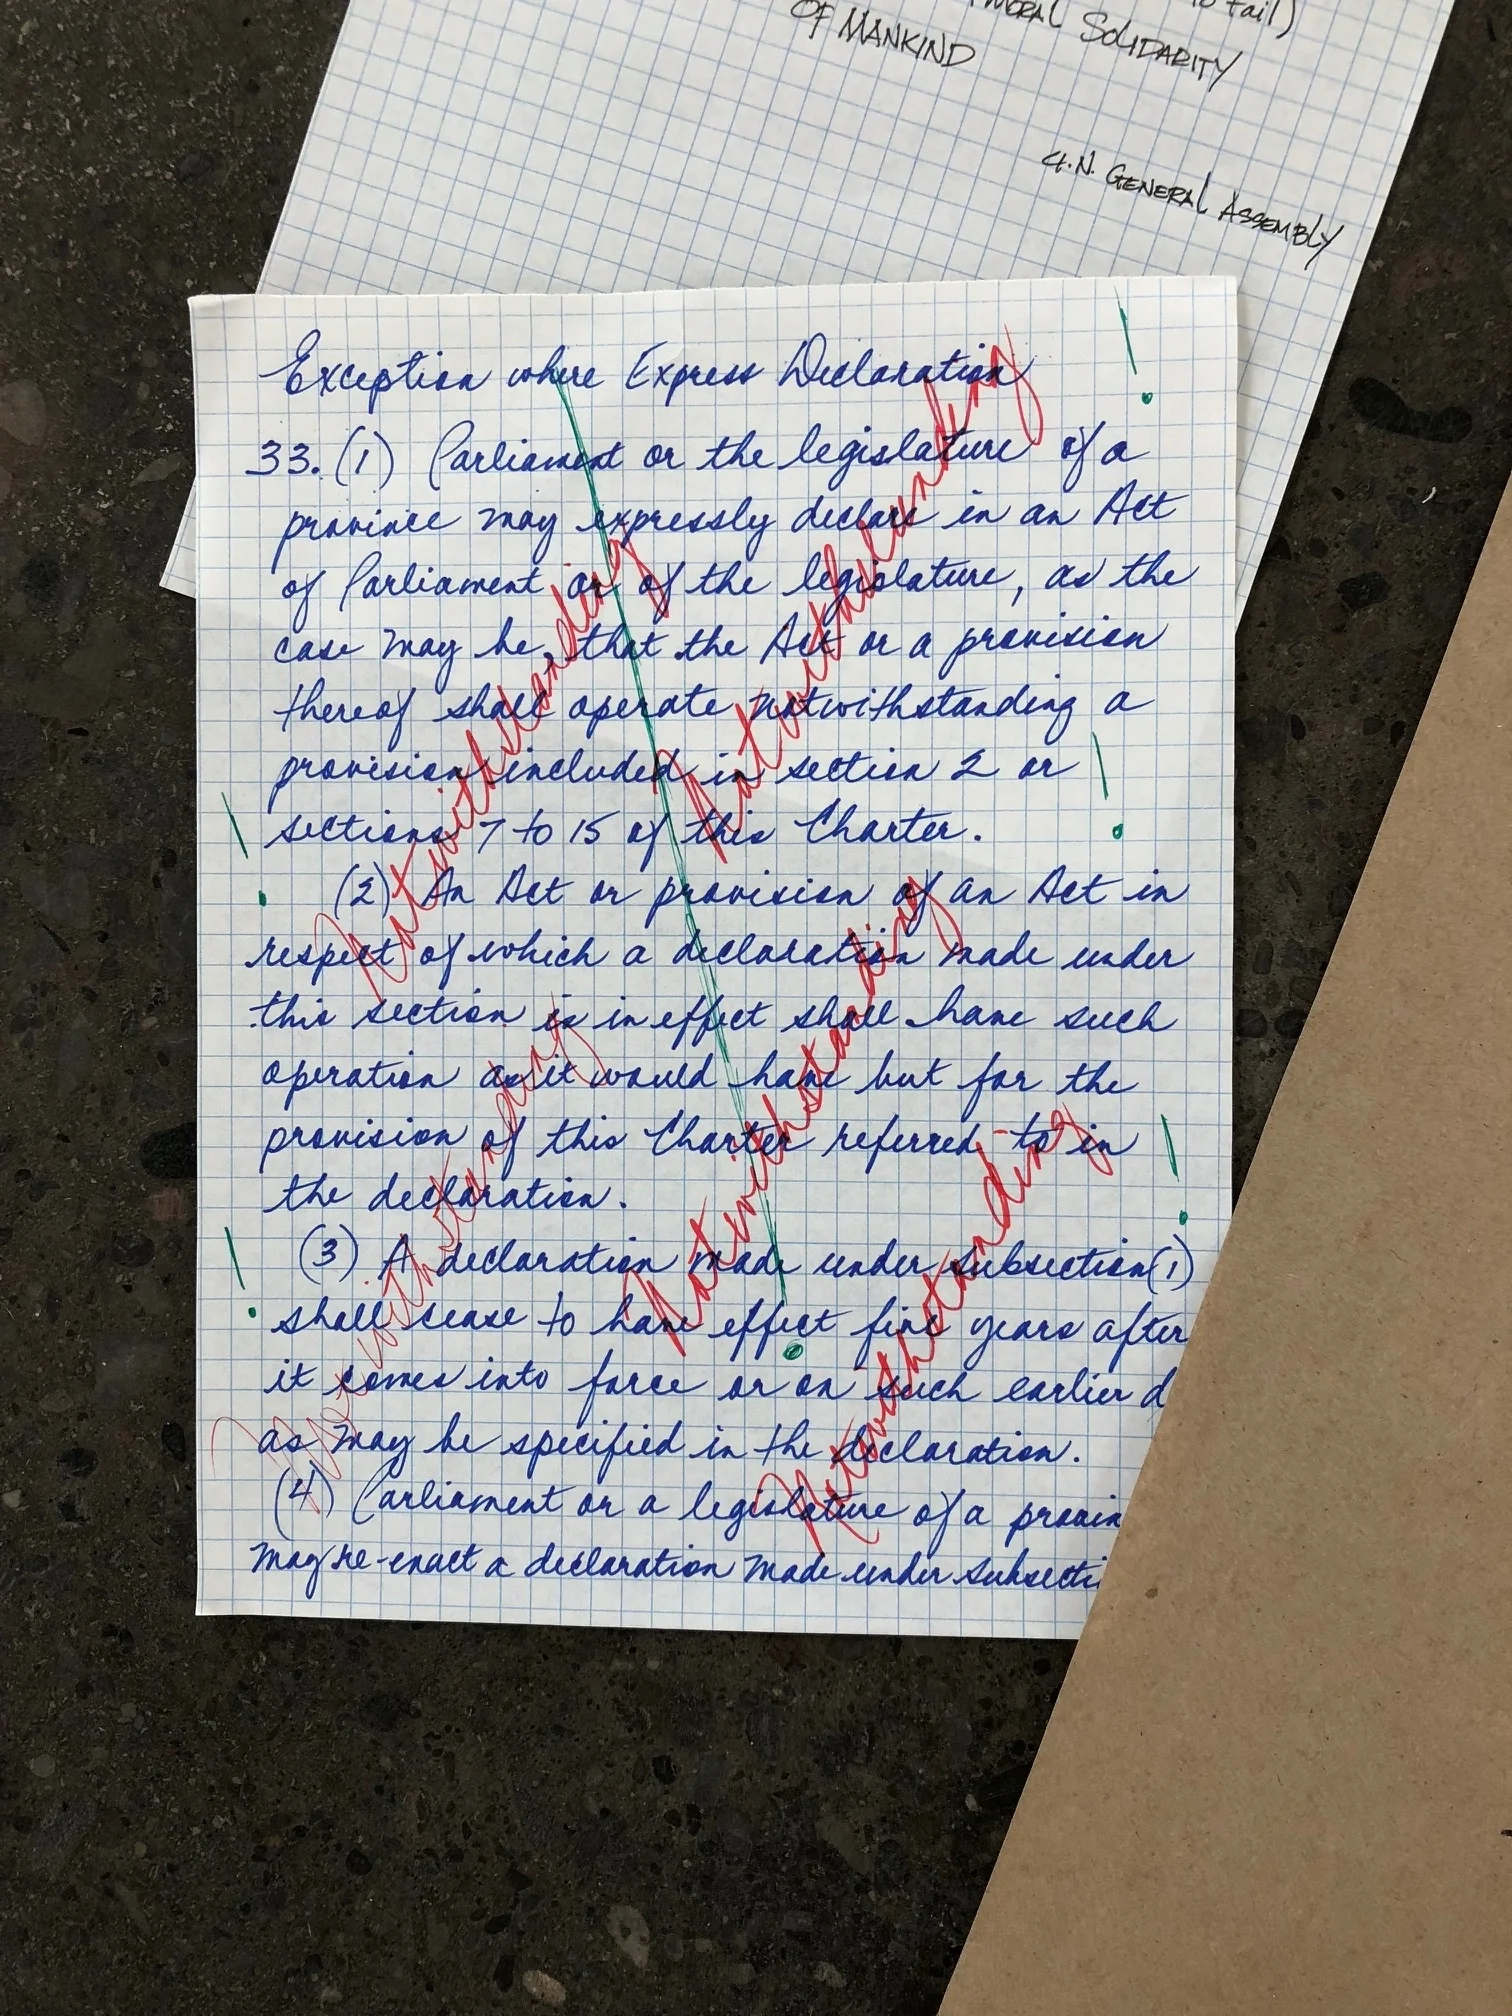 to fail)
MORAL SOLIDARITY
OF MANKIND
U.N. GENERAL ASSEMBLY
Exception where Express Declaration
33. (1) Parliament or the legislature of a
province may expressly declare in an Act
of Parliament or of the legislature, as the
case may be, that the Act or a provision
thereof shall operate notwithstanding a
provision included in section 2 or
sections 7 to 15 of this Charter.
(2) An Act or provision of an Act in
respect of which a declaration made under
this section is in effect shall have such
operation as it would have but for the
provision of this Charter referred to in
the declaration.
(3) A declaration made under subsection (1)
shall cease to have effect five years after
it comes into force or on such earlier d
as may be specified in the declaration.
(4) Parliament or a legislature of a provin
may re-enact a declaration made under subsecti
Notwithstanding
Notwithstanding
Notwithstanding
Notwithstanding
Notwithstanding
!
!
!
!
!
!